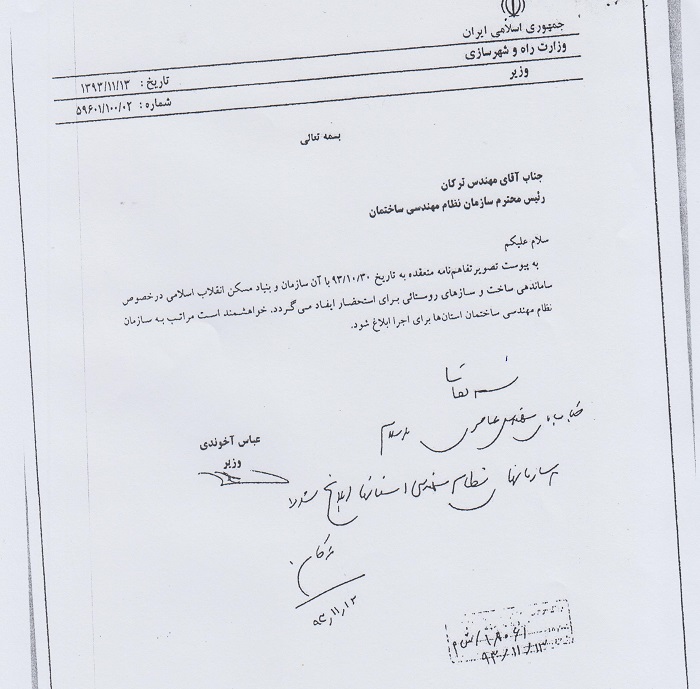 جمهوری اسلامی ایران
وزارت راه و شهرسازی
وزیر
تاریخ : ۱۳۹۳/۱۱/۱۳
شماره : ۵۹۶۰۱/۱۰۰/۰۲
بسمه تعالی
جناب آقای مهندس ترکان
رئیس محترم سازمان نظام مهندسی ساختمان
سلام علیکم
به پیوست تصویر تفاهم‌نامه منعقده به تاریخ ۹۳/۱۰/۳۰ با آن سازمان و بنیاد مسکن انقلاب اسلامی در خصوص
ساماندهی ساخت و سازهای روستائی برای استحضار ایفاد می‌گردد. خواهشمند است مراتب به سازمان
نظام مهندسی ساختمان استان‌ها برای اجرا ابلاغ شود.
عباس آخوندی
وزیر
جناب مهندس سلام
به سازمانهای نظام مهندسی استانها ابلاغ شود
ترکان
۹۳/۱۱/۱۳
۹۳/۱۱/۱۳